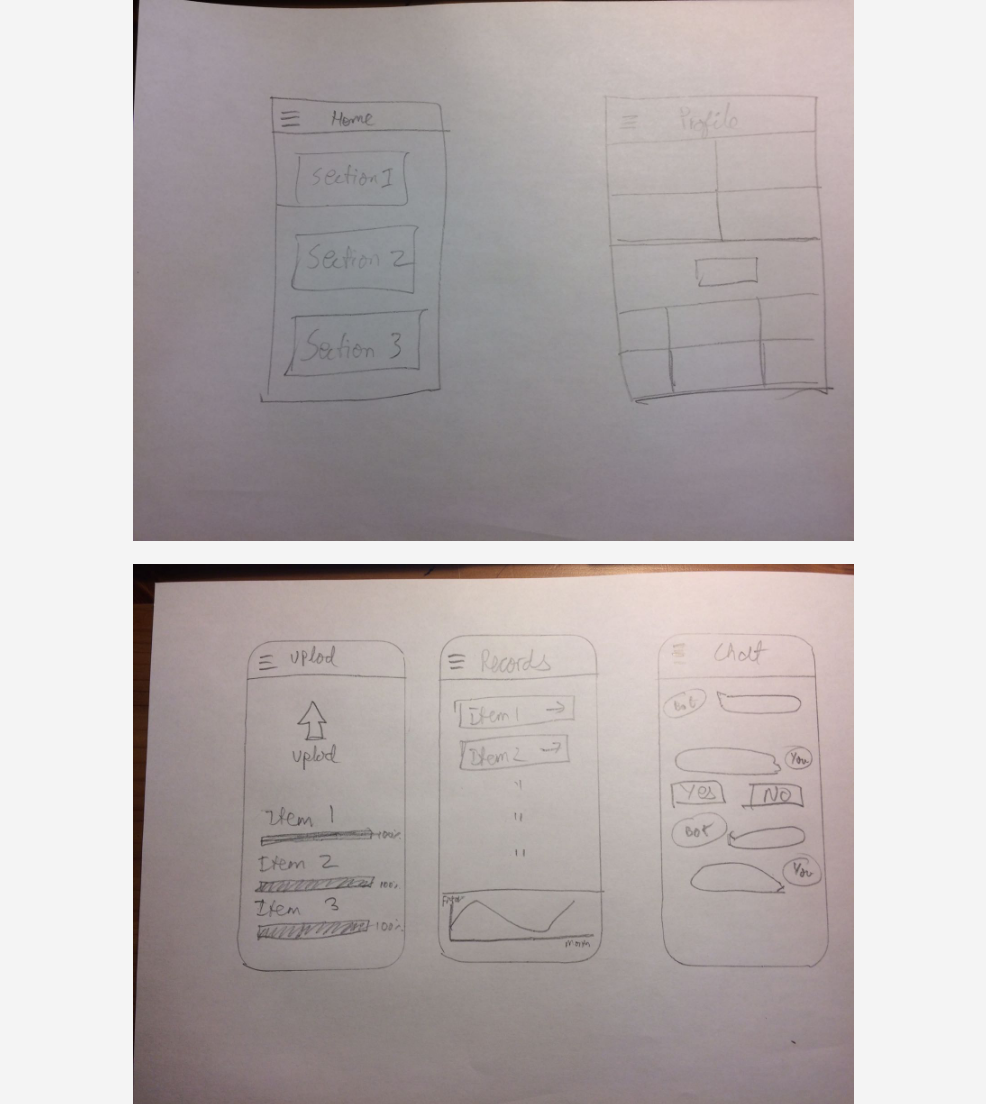 Home
Section 1
Section 2
Section 3
Profile
Uplod
Uplod
Item 1
100%
Item 2
100%
Item 3
100%
Records
Item 1
Item 2
"
"
"
Month
Chat
Bot
You
Yes
No
Bot
You